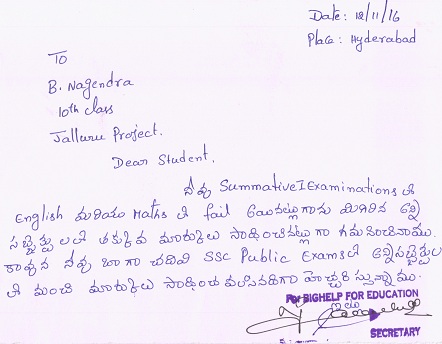 Date: 12/11/16
Place: Hyderabad
To
B. Nagendra
10th class
Jalluru Project.
Dear Student,
నీవు Summative I Examinations లో
English మరియు Maths లో fail అయినట్లుగాను మిగిలిన అన్ని
సబ్జెక్టులలో తక్కువ మార్కులు సాధించినట్లు గా గమనించినాము.
కావున నీవు బాగా చదివి SSC Public Exams లో అన్ని సబ్జెక్టుల
లో మంచి మార్కులు సాధించ వలసినదిగా హెచ్చరిస్తున్నాము.
For BIGHELP FOR EDUCATION
SECRETARY